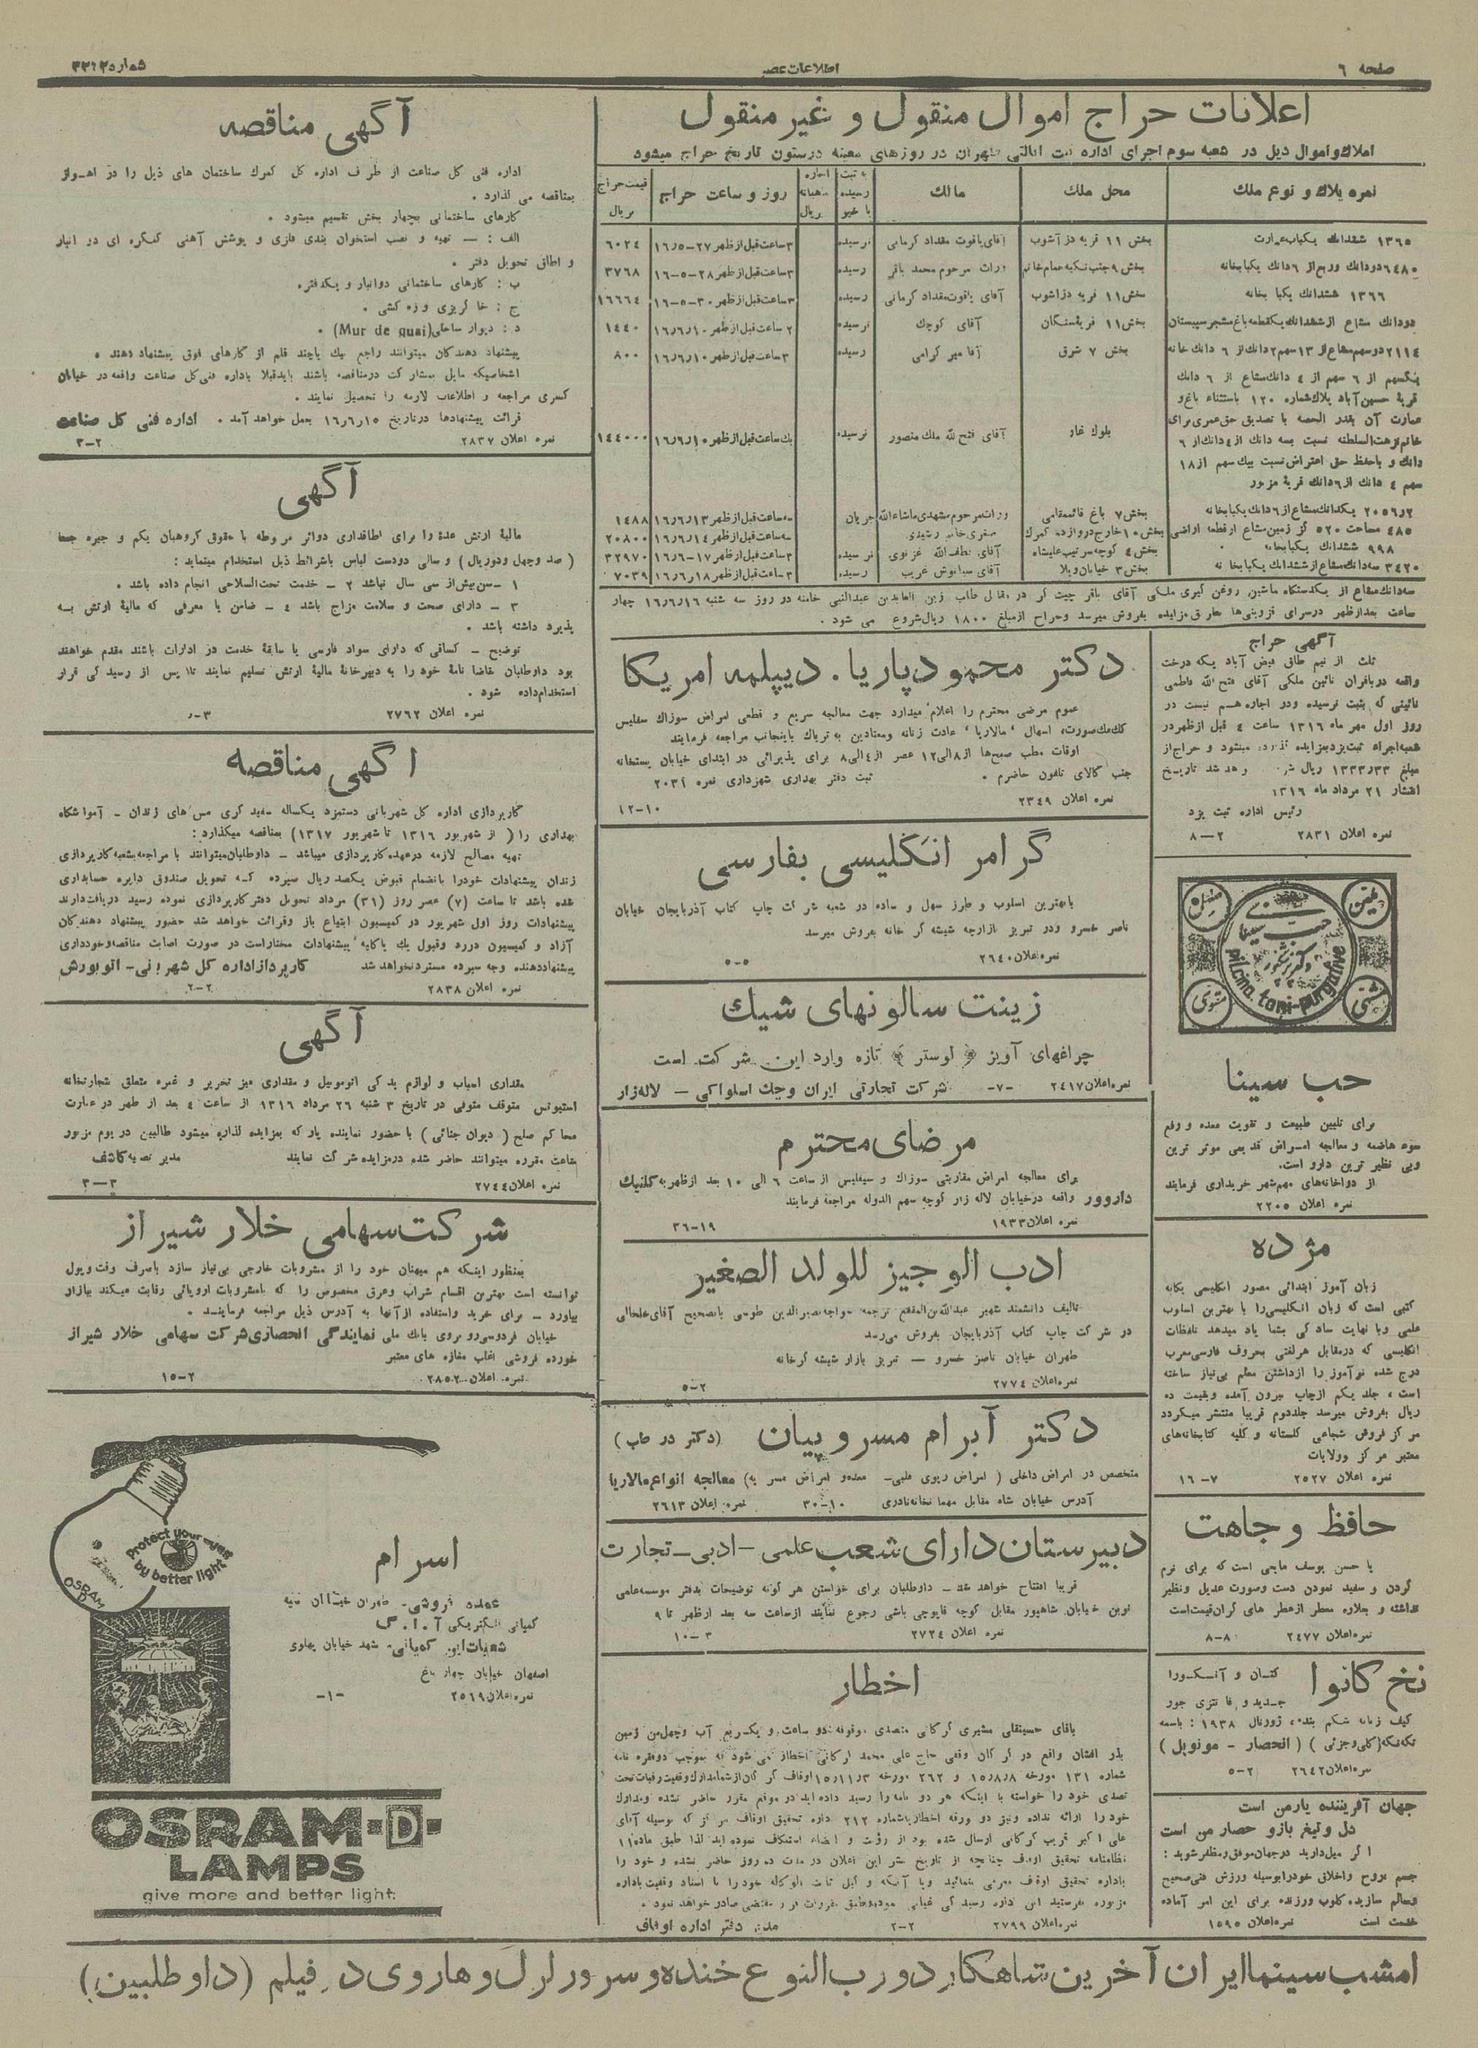 صفحه ٦
اطلاعات عصر
شماره ۳۳۱۳
اعلانات حراج اموال منقول و غیر منقول
املاك و اموال ذیل در شعبه سوم اجرای اداره ثبت ایالتی طهران در روزهای معینه درستون تاریخ حراج میشود
نمره پلاك و نوع ملك
محل ملك
مالك
به ثبت رسیده یا خیر
اجاره ماهیانه ریال
روز و ساعت حراج
قیمت حراج ریال
۱۳٦٥ ششدانك یکباب عمارت
بخش ۱۱ قریه دزآشوب
آقای یاقوت مقداد کرمانی
نرسیده
۳ ساعت قبل از ظهر ۲۷-٥ر۱٦
٦۰۲٤
٦٤۸۰ دودانك وربع از ٦ دانك یکبابخانه
وراث مرحوم محمد باقر
رسیده
۳ ساعت قبل از ظهر ۲۸-٥-۱٦
۳۷٦۸
۱۳٦٦ ششدانك یکبا بخانه
بخش ۱۱ قریه دزاشوب
آقای یاقوت مقداد کرمانی
رسیده
۳ ساعت قبل از ظهر ۳۰-٥-۱٦
۱٦٦٦٤
دودانك مشاع از ششدانك یکقطعه باغ مشجر سیبستان
بخش ۱۱ قریه سنگان
آقای کوچك
نرسیده
۲ ساعت قبل از ظهر ۱۰ر٦ر۱٦
۱٤٤۰
۲۱۱٤ دوسهم مشاع از ۱۳ سهم ۲ دانك از ٦ دانك خانه
بخش ۷ شرق
آقا میر گرامی
رسیده
۳ ساعت قبل از ظهر ۱۰ر٦ر۱٦
۸۰۰
یکسهم از ٦ سهم از ٤ دانك مشاع از ٦ دانك
قریه حسین آباد پلاك شماره ۱۲۰ باستثناء باغ و
عمارت آن بقدر الحصه با تصدیق حق عمری برای
خانم نزهت السلطنه نسبت بسه دانك از ٤ دانك از ٦
دانك و باحفظ حق اعتراض نسبت بیك سهم از ۱۸
سهم ٤ دانك از ٦ دانك قریه مزبور
بلوك غار
آقای فتح الله ملك منصور
نرسیده
یك ساعت قبل از ظهر ۱۰ر٦ر۱٦
۱٤٤۰۰۰
۲۰٥٦ر۲ یکدانك مشاع از ٦ دانك یکبابخانه
بخش ۷ باغ قائممقامی
وراث مرحوم مشهدی ماشاءالله
جریان
سه ساعت قبل از ظهر ۱۳ر٦ر۱٦
۱٤۸۸
٤۸٥ مساحت ٥۲۰ گز زمین مشاع از قطعه اراضی
بخش ۱۰ خارج دروازه گمرك
سه ساعت قبل از ظهر ۱٤ر٦ر۱٦
۲۰۸۰۰
۹۹۸ ششدانك یکبابخانه
بخش ٤ کوچه سرتیپ علیشاه
آقای لطف الله غزنوی
نرسیده
۳ ساعت قبل از ظهر ۱۷-٦ر۱٦
۳۲۹۷۰
۳٤۲۰ سه دانك مشاع از ششدانك یکبابخانه
بخش ۳ خیابان ویلا
آقای سیاوش غریب
رسیده
۳ ساعت قبل از ظهر ۱۸ر٦ر۱٦
۷۰۳۹
سه دانك مشاع از یکدستگاه ماشین روغن گیری ملکی آقای باقر چیت گر در مقابل طلب زین العابدین عبدالنبی خامنه دو روز سه شنبه ۱٦ر٦ر۱٦ چهار
ساعت بعدازظهر درسرای قزوینی‌ها بطریق مزایده بفروش میرسد وحراج ازمبلغ ۱۸۰۰ ریال شروع می شود.
آگهی حراج
ثلث از نیم طاق فیض آباد یکه درخت
واقعه دربافران نائین ملکی آقای فتح الله فاطمی
نائینی که بثبت نرسیده ودر اجاره هم نیست در
روز اول مهر ماه ۱۳۱٦ ساعت ٤ قبل ازظهر در
شعبه اجراء ثبت یزد بمزایده میشود و حراج از
مبلغ ۱۳۳۳ر۳۳ ریال خواهد شد تاریخ
انتشار ۲۱ مرداد ماه ۱۳۱٦
رئیس اداره ثبت یزد
نمره اعلان ۲۸۳۱ ۲-۸
pilcina. tani-purgative
حب سینا
برای تلیین طبیعت و تقویت معده و رفع
سوء هاضمه و معالجه امراض قدیمی موثر ترین
وبی نظیر ترین دارو است.
از دواخانه‌های مهم شهر خریداری فرمایند
نمره اعلان ۲۲۰٥
مژده
زبان آموز ابتدائی مصور انگلیسی یگانه
کتبی است که زبان انگلیسی را با بهترین اسلوب
علمی وبا نهایت سادگی بشما یاد میدهد تلفظات
انگلیسی که درمقابل هرلغتی بحروف فارسی معرب
درج شده نوآموز را ازداشتن معلم بی نیاز ساخته
است، جلد یکم ازچاپ بیرون آمده وبقیمت ده
ریال بفروش میرسد جلددوم قریبا منتشر میگردد
مرکز فروش شجاعی گلستانه و کلیه کتابخانه‌های
معتبر مرکز وولایات
نمره اعلان ۲٥۲۷ ۷-۱٦
حافظ وجاهت
یا حسن یوسف مایعی است که برای نرم
کردن و سفید نمودن دست وصورت عدیل ونظیر
نداشته و بعلاوه معطر ازعطر های گران قیمت است
نمره اعلان ۲٤۷۷ ۸-۸
نخ کانوا
کتان و آنکورا
جدید و فانتزی جور
کیف زنانه شکم بنده، ژورنال ۱۹۳۸: باسمه
تکه تکه (کلی وجزئی) (انحصار - مونوپل)
نمره اعلان ۲٦٤۲ ۲-٥
جهان آفریننده یارمن است
دل و تیغ بازو حصار من است
اگر میل دارید درجهان موفق ومظفر شوید:
جسم بروح واخلاق خودرا بوسیله ورزش فنی صحیح
وسالم سازید. کلوب ورزنده برای این امر آماده
خدمت است نمره اعلان ۱٥۹٥
دکتر محمود پاریا. دیپلمه امریکا
عموم مرضی محترم را اعلام میدارد جهت معالجه سریع و قطعی امراض سوزاك سفلیس
كك مك صورت، اسهال ’مالاریا‘ عادت زنانه ومعتادین به تریاك باینجانب مراجعه فرمایند
اوقات مطب صبح‌ها از ۸ الی ۱۲ عصر از ٤ الی ۸ برای پذیرائی در ابتدای خیابان پستخانه
جنب کالای تلفون حاضرم. ثبت دفتر بهداری شهرداری نمره ۲۰۳۱
نمره اعلان ۲۳٤۹ ۱۰-۱۲
گرامر انگلیسی بفارسی
با بهترین اسلوب و طرز سهل و ساده در شعبه شرکت چاپ کتاب آذربایجان خیابان
ناصر خسرو ودر تبریز بازارچه شیشه گر خانه بفروش میرسد
نمره اعلان ۲٦٤۰ ٥-٥
زینت سالونهای شیك
چراغهای آویز «لوستر» تازه وارد این شرکت است
نمره اعلان ۲٤۱۷ -۷- شرکت تجارتی ایران وچك اسلواکی - لاله زار
مرضای محترم
برای معالجه امراض مقاربتی سوزاك و سیفلیس از ساعت ٦ الی ۱۰ بعد ازظهر به كلنيك
داروور واقعه درخیابان لاله زار کوچه سهم الدوله مراجعه فرمایند
نمره اعلان ۱۹۳۳ ۱۹-۲٦
ادب الوجیز للولد الصغیر
تالیف دانشمند شهیر عبدالله بن المقفع ترجمه خواجه نصیرالدین طوسی با تصحیح آقای خلخالی
در شرکت چاپ کتاب آذربایجان بفروش می‌رسد
طهران خیابان ناصر خسرو - تبریز بازار شیشه گرخانه
نمره اعلان ۲۷۷٤ ۲-٥
دکتر آبرام مسروپیان (دکتر در طب)
متخصص در امراض داخلی (امراض ریوی قلبی - معده و امراض مسریه) معالجه انواع مالاریا
آدرس خیابان شاه مقابل مهمانخانه نادری ۱۰-۳۰ نمره اعلان ۲٦۱۳
دبیرستان دارای شعب علمی - ادبی - تجارت
قریبا افتتاح خواهد شد - داوطلبان برای خواستن هر گونه توضیحات بدفتر موسسه علمی
نوین خیابان شاهپور مقابل کوچه قاپوچی باشی رجوع نمایند ازساعت سه بعد ازظهر تا ۹
نمره اعلان ۲۷۲٤ ۳-۱۰
اخطار
باقای حسینقلی مشیری گرکانی متصدی موقوفه دو ساعت و یکربع آب وچهل من زمین
بذر افشان واقع در گرکان وقفی حاج علی محمد گرکانی اخطار می شود که بموجب دوفقره نامه
شماره ۱۳۱ مورخه ۸ر۸ر۱٥ و ۲٦۲ مورخه ۳ر۱۱ر۱٥ اوقاف گرکان ازشما مدارك وقفیت رقبات تحت
تصدی خود را خواسته با اینکه هر دو نامه را رسید داده اید در موقع مقرر حاضر نشده ومدارك
خود را ارائه نداده ونیز دو ورقه اخطار باشماره ۲۱۲ اداره تحقیق اوقاف مرکز که بوسیله آقای
علی اکبر غریب گرکانی ارسال شده بود از رؤیت و امضاء استنکاف نموده اید لذا طبق ماده ۱۱
نظامنامه تحقیق اوقاف چنانچه از تاریخ نشر این اعلان در مدت ده روز حاضر نشده و خود را
باداره تحقیق اوقاف معرفی ننمائید ویا آنکه وکیل ثابت الوکاله خود را با اسناد وقفیت باداره
مزبوره نفرستید این اداره رسیدگی غیابی نموده وطبق مقررات قرار مقتضی صادر خواهد نمود.
نمره اعلان ۲۷۹۹ ۲-۲ مدیر دفتر اداره اوقاف
آگهی مناقصه
اداره فنی کل صناعت از طرف اداره کل گمرك ساختمان های ذیل را در اهواز
بمناقصه می گذارد.
کارهای ساختمانی بچهار بخش تقسیم میشود.
الف: - تهیه و نصب استخوان بندی فلزی و پوشش آهنی کنگره ای در انبار
و اطاق تحویل دفتر.
ب: کارهای ساختمانی دوانبار و یکدفتر.
ج: خاگریزی و زه کشی.
د: دیوار ساحلی (Mur de quai).
پیشنهاد دهندگان میتوانند راجع بیك یاچند قلم از کارهای فوق پیشنهاد دهند.
اشخاصیکه مایل بشرکت درمناقصه باشند بایدقبلا باداره فنی کل صناعت واقعه در خیابان
کسری مراجعه و اطلاعات لازمه را تحصیل نمایند.
قرائت پیشنهادها درتاریخ ۱٥ر٦ر۱٦ بعمل خواهد آمد. اداره فنی کل صناعت
نمره اعلان ۲۸۳۷ ۲-۳
آگهی
مالیهٔ ارتش عدهٔ را برای اطاقداری دوائر مربوطه با حقوق گروهبان یکم و جیره جمعا
(صد وچهل ودوریال) و سالی دودست لباس باشرائط ذیل استخدام مینماید:
۱ - سن بیش از سی سال نباشد ۲ - خدمت تحت السلاحی انجام داده باشد.
۳ - دارای صحت و سلامت مزاج باشد ٤ - ضامن یا معرفی که مالیهٔ ارتش به
پذیرد داشته باشد.
توضیح - کسانی که دارای سواد فارسی یا سابقهٔ خدمت در ادارات باشند مقدم خواهند
بود داوطلبان تقاضا نامهٔ خود را به دبیرخانهٔ مالیهٔ ارتش تسلیم نمایند تا پس از رسیدگی قرار
استخدام داده شود.
نمره اعلان ۲۷٦۲
آگهی مناقصه
کارپردازی اداره کل شهربانی دستمزد یکساله سفیدگری مس های زندان - آموزشگاه
بهداری را (از شهریور ۱۳۱٦ تا شهریور ۱۳۱۷) بمناقصه میگذارد:
تهیه مصالح لازمه درعهده کارپردازی میباشد - داوطلبان میتوانند با مراجعه بشعبه کارپردازی
زندان پیشنهادات خودرا بانضمام قبوض یکصد ریال سپرده که تحویل صندوق دایره حسابداری
شده باشد تا ساعت (۷) عصر روز (۳۱) مرداد تحویل دفتر کارپردازی نموده رسید دریافت دارند
پیشنهادات روز اول شهریور در کمیسیون ابتیاع باز وقرائت خواهد شد حضور پیشنهاد دهندگان
آزاد و کمیسیون دررد وقبول یك یا کلیه پیشنهادات مختاراست در صورت اصابت مناقصه وخودداری
پیشنهاددهنده وجه سپرده مسترد نخواهد شد کارپرداز اداره کل شهربانی - اتوبورش
نمره اعلان ۲۸۳۸ ۲-۲
آگهی
مقداری اسباب و لوازم یدکی اتوموبیل و مقداری میز تحریر و غیره متعلق بتجارتخانه
استیونس متوقف متوفی در تاریخ ۳ شنبه ۲٦ مرداد ۱۳۱٦ از ساعت ٤ بعد از ظهر در عمارت
محاکم صلح (دیوان جنائی) با حضور نماینده پارکه بمزایده گذارده میشود طالبین در یوم مزبور
ساعت مقرره میتوانند حاضر شده درمزایده شرکت نمایند مدیر تصفیه کاشف
نمره اعلان ۲۷٤٤ ۳-۳
شرکت سهامی خلار شیراز
بمنظور اینکه هم میهنان خود را از مشروبات خارجی بی نیاز سازد باصرف وقت و پول
توانسته است بهترین اقسام شراب وعرق مخصوص را که بامشروبات اروپائی رقابت میکند ببازار
بیاورد - برای خرید واستفاده ازآنها به آدرس ذیل مراجعه فرمایند.
خیابان فردوسی روبروی بانك ملی نمایندگی انحصاری شرکت سهامی خلار شیراز
خورده فروشی اغلب مغازه های معتبر
نمره اعلان ۲۸٥۲ ۲-۱٥
protect your eyes
by better light
OSRAM
D
اسرام
عمده فروشی - طهران خیابان علائیه
کمپانی الکتریکی آ.ا.گ
شعبات این کمپانی - مشهد خیابان پهلوی
اصفهان خیابان چهار باغ
نمره اعلان ۲٥۱۹ -۱-
OSRAM-D-
LAMPS
give more and better light.
امشب سینما ایران آخرین شاهکار دو رب النوع خنده و سرور لرل و هاردی در فیلم (داوطلبین)